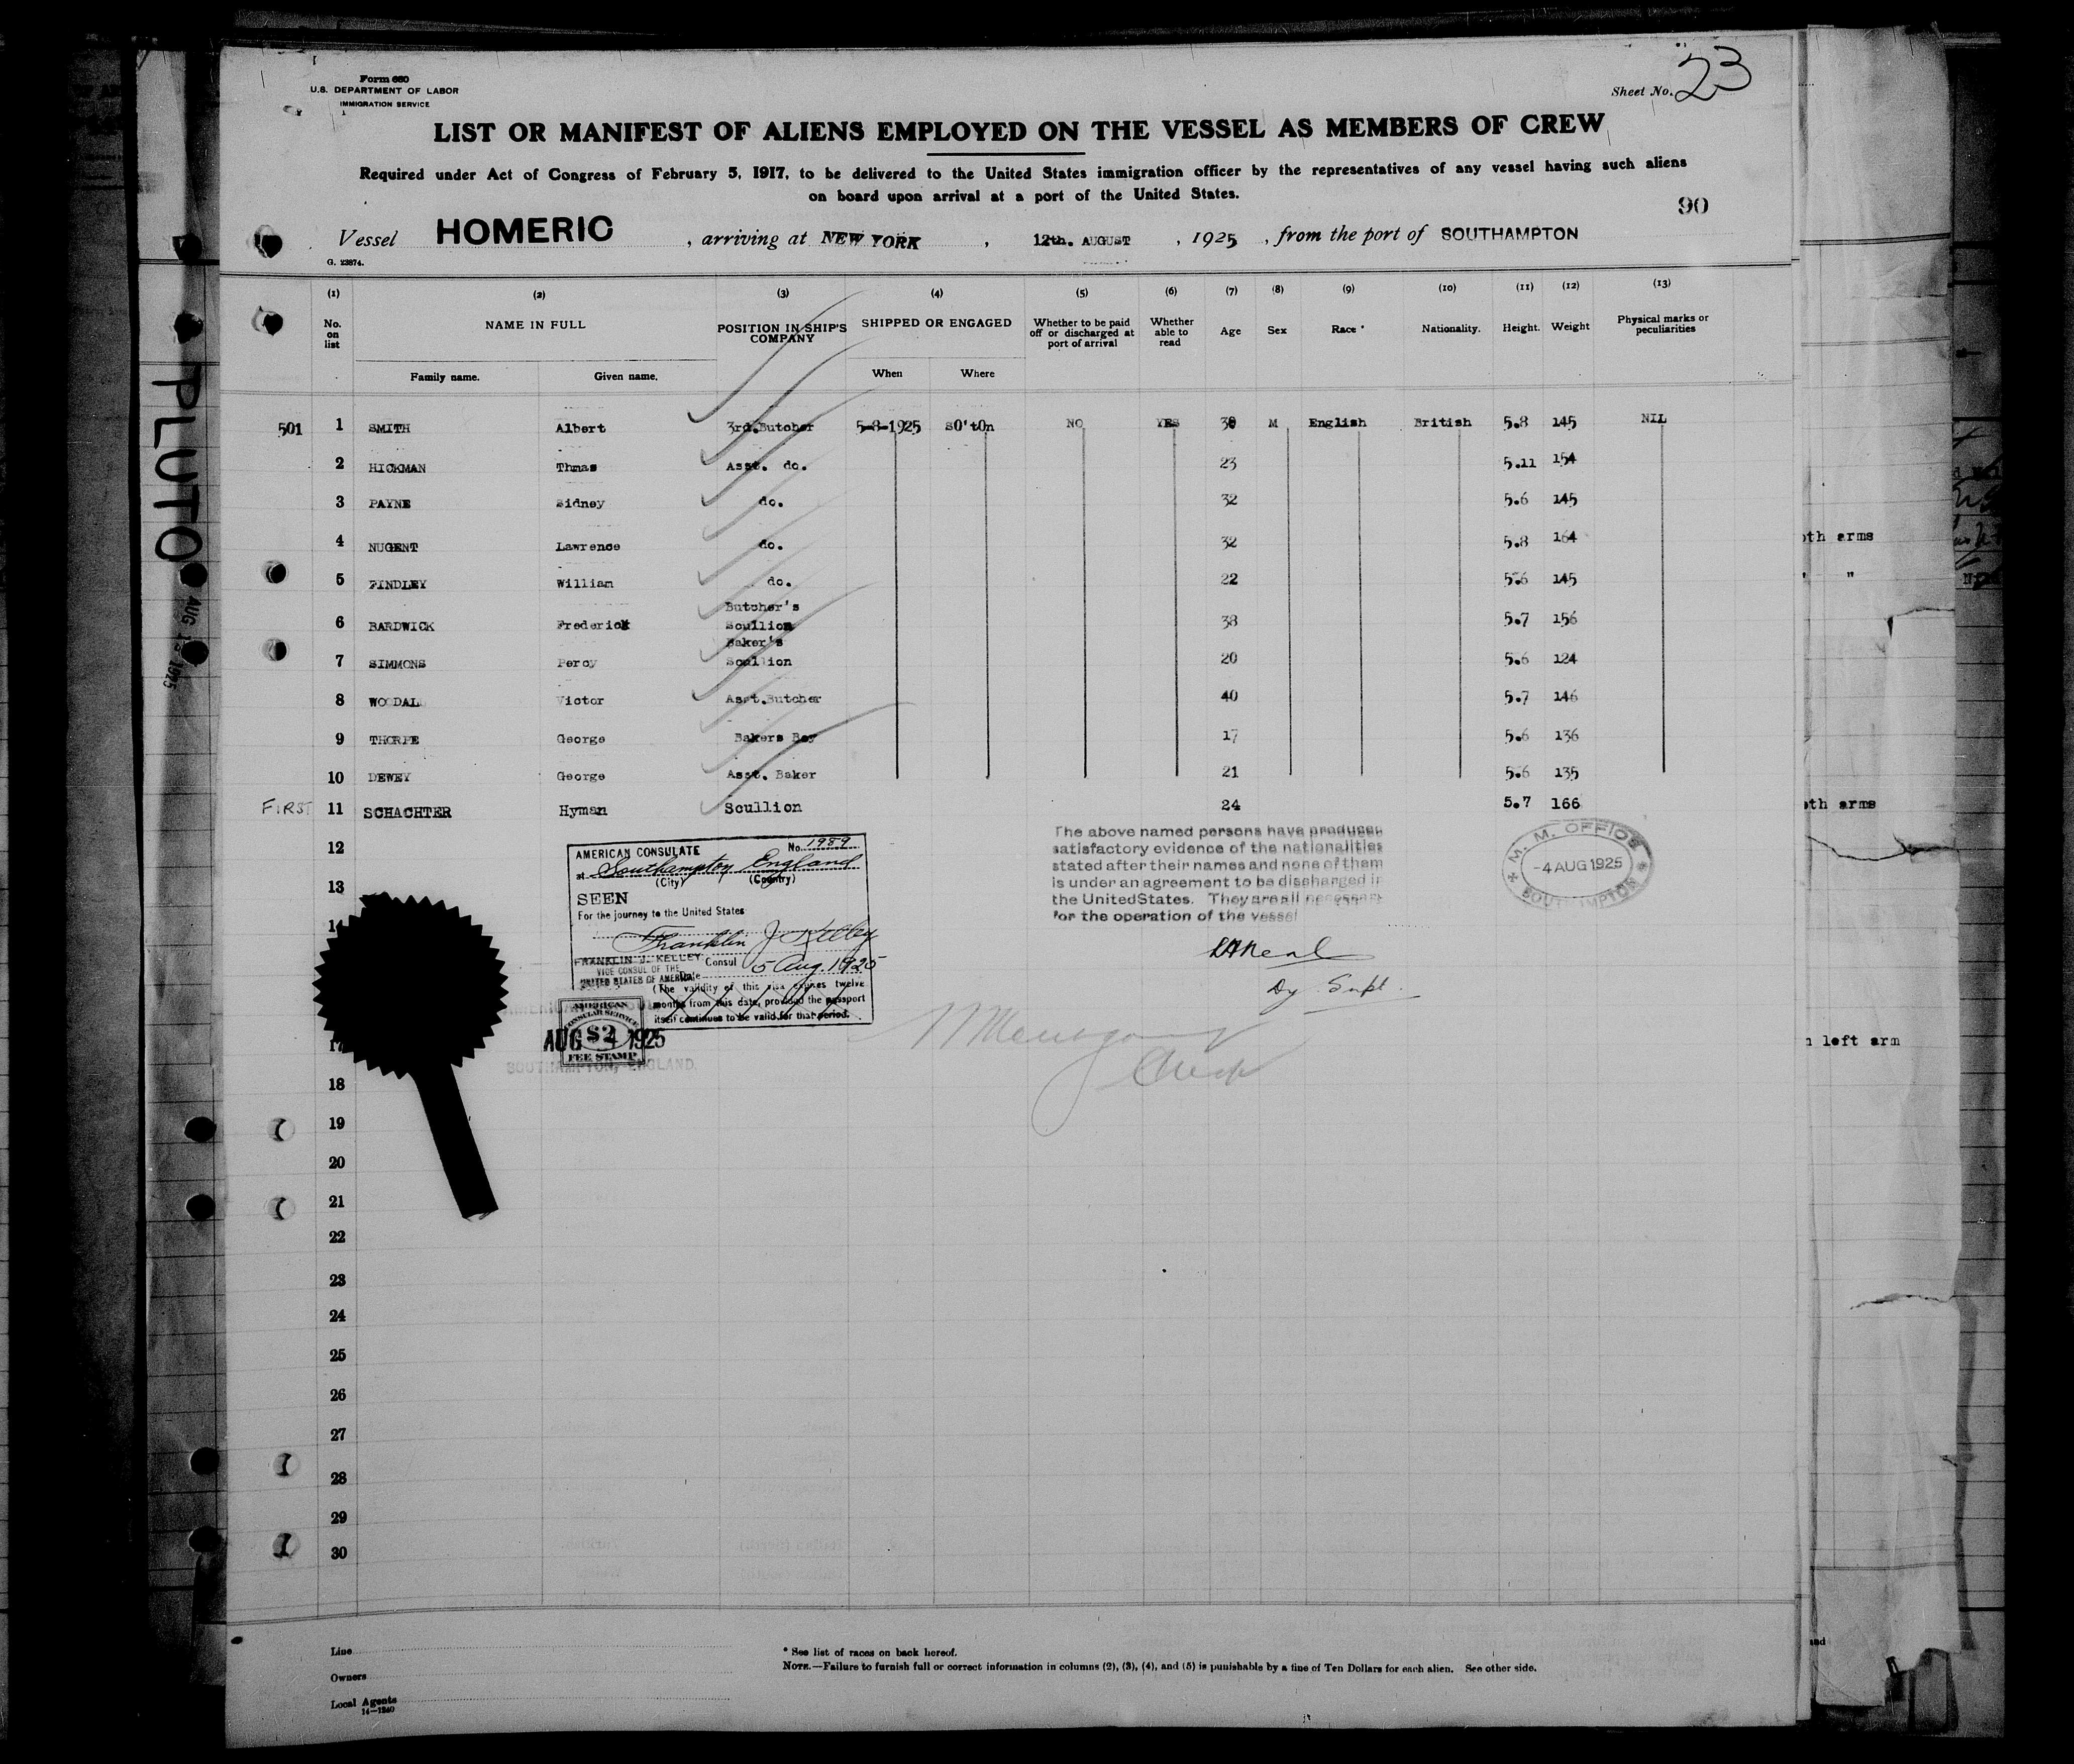 Form 680
U.S. DEPARTMENT OF LABOR
IMMIGRATION SERVICE
Sheet No. 23
LIST OR MANIFEST OF ALIENS EMPLOYED ON THE VESSEL AS MEMBERS OF CREW
Required under Act of Congress of February 5, 1917, to be delivered to the United States immigration officer by the representatives of any vessel having such aliens
on board upon arrival at a port of the United States.
90
Vessel HOMERIC, arriving at NEW YORK, 12th. AUGUST, 1925, from the port of SOUTHAMPTON
G. 23874.
(1) (2) (3) (4) (5) (6) (7) (8) (9) (10) (11) (12) (13)
No. on list NAME IN FULL POSITION IN SHIP'S COMPANY SHIPPED OR ENGAGED Whether to be paid off or discharged at port of arrival Whether able to read Age Sex Race * Nationality. Height. Weight Physical marks or peculiarities
Family name. Given name. When Where
501 1 SMITH Albert 3rd.Butcher 5-8-1925 S0't0n NO YES 30 M English British 5.8 145 NIL
2 HICKMAN Thmas Asst. do. 23 5.11 154
3 PAYNE Sidney do. 32 5.6 145
4 NUGENT Lawrence do. 32 5.8 164
5 FINDLEY William do. 22 5.6 145
6 BARDWICK Frederick Butcher's Scullion 38 5.7 156
7 SIMMONS Percy Baker's Scullion 20 5.6 124
8 WOODALL Victor Asst.Butcher 40 5.7 146
9 THORPE George Bakers Boy 17 5.6 136
10 DEWEY George Asst. Baker 21 5.6 135
FIRST 11 SCHACHTER Hyman Scullion 24 5.7 166
12
13
17
18
19
20
21
22
23
24
25
26
27
28
29
30
AMERICAN CONSULATE No. 1989
at Southampton England
(City) (Country)
SEEN
For the journey to the United States
Franklin J Kelley
FRANKLIN J. KELLEY Consul
VICE CONSUL OF THE
UNITED STATES OF AMERICA Date 5 Aug. 1925
(The validity of this visa expires twelve
months from this date, provided the passport
itself continues to be valid for that period.
AMERICAN
CONSULAR SERVICE
$2
FEE STAMP
AUG 4 1925
SOUTHAMPTON, ENGLAND.
The above named persons have produced
satisfactory evidence of the nationalities
stated after their names and none of them
is under an agreement to be discharged in
the United States. They are all necessary
for the operation of the vessel
Dy Supt.
M. M. OFFICE
-4 AUG 1925
SOUTHAMPTON
Line
Owners
Local Agents
14-1240
* See list of races on back hereof.
NOTE.—Failure to furnish full or correct information in columns (2), (3), (4), and (5) is punishable by a fine of Ten Dollars for each alien. See other side.
PLUTO
AUG 1925
oth arms
" "
oth arms
n left arm